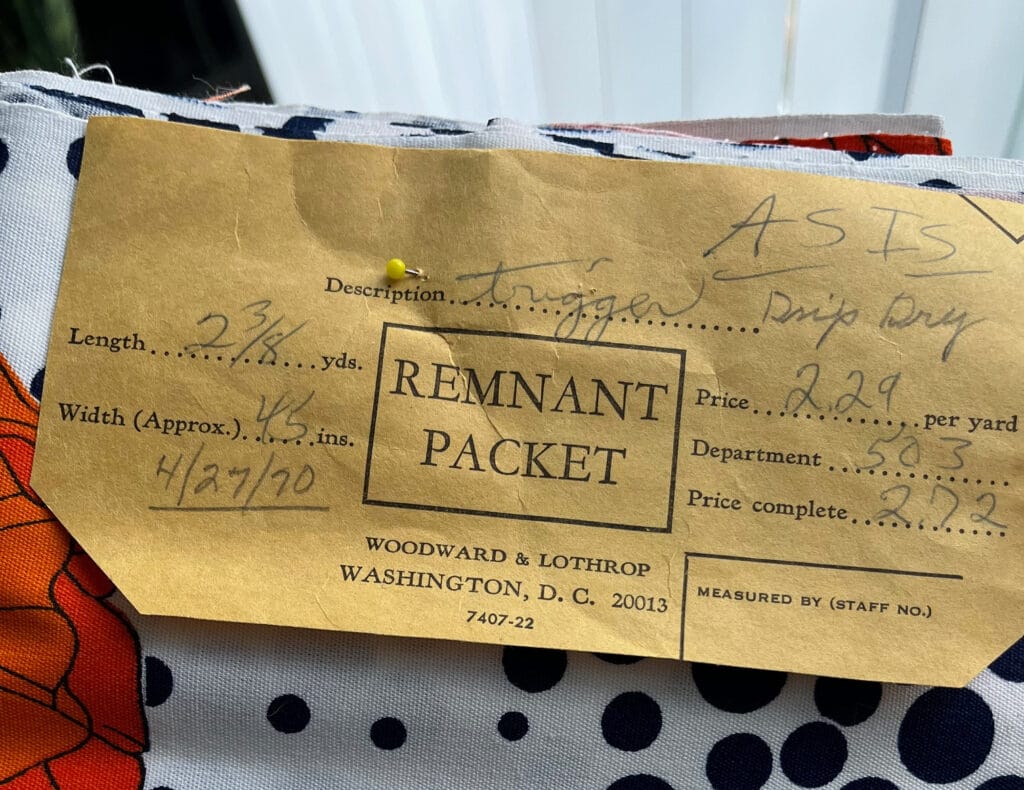 AS IS
Description trigger Drip Dry
Length 2 3/8 yds.
Width (Approx.) 45 ins.
4/27/70
REMNANT
PACKET
Price 2.29 per yard
Department 503
Price complete 2.72
WOODWARD & LOTHROP
WASHINGTON, D. C. 20013
7407-22
MEASURED BY (STAFF NO.)